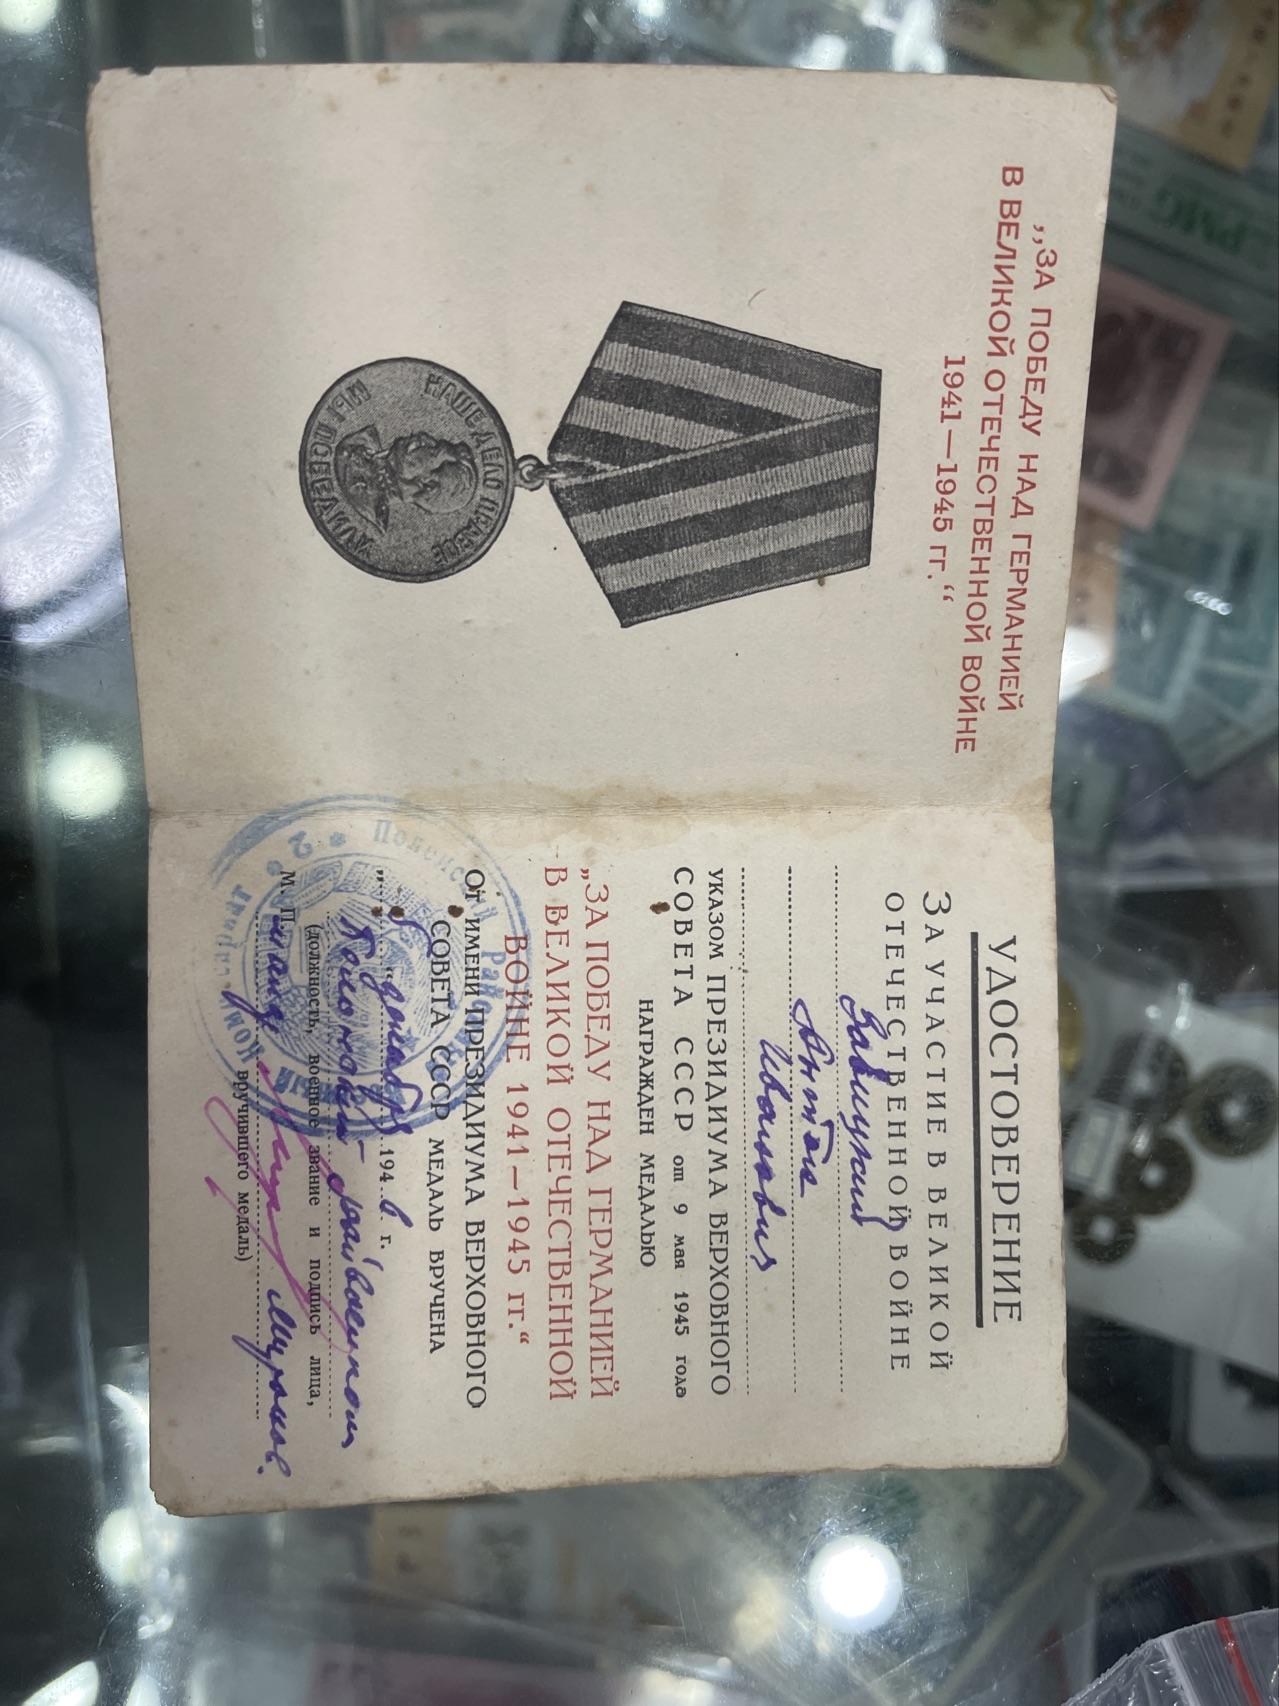 „ЗА ПОБЕДУ НАД ГЕРМАНИЕЙ
В ВЕЛИКОЙ ОТЕЧЕСТВЕННОЙ ВОЙНЕ
1941—1945 гг.“
НАШЕ ДЕЛО ПРАВОЕ
МЫ ПОБЕДИЛИ
УДОСТОВЕРЕНИЕ
ЗА УЧАСТИЕ В ВЕЛИКОЙ
ОТЕЧЕСТВЕННОЙ ВОЙНЕ
Антон
Иванович
УКАЗОМ ПРЕЗИДИУМА ВЕРХОВНОГО
СОВЕТА СССР от 9 мая 1945 года
НАГРАЖДЕН МЕДАЛЬЮ
„ЗА ПОБЕДУ НАД ГЕРМАНИЕЙ
В ВЕЛИКОЙ ОТЕЧЕСТВЕННОЙ
ВОЙНЕ 1941—1945 гг.“
От ИМЕНИ ПРЕЗИДИУМА ВЕРХОВНОГО
СОВЕТА СССР МЕДАЛЬ ВРУЧЕНА
декабря 1946 г.
Районный
(должность, военное звание и подпись лица,
М. П.
вручившего медаль)
2
PMG